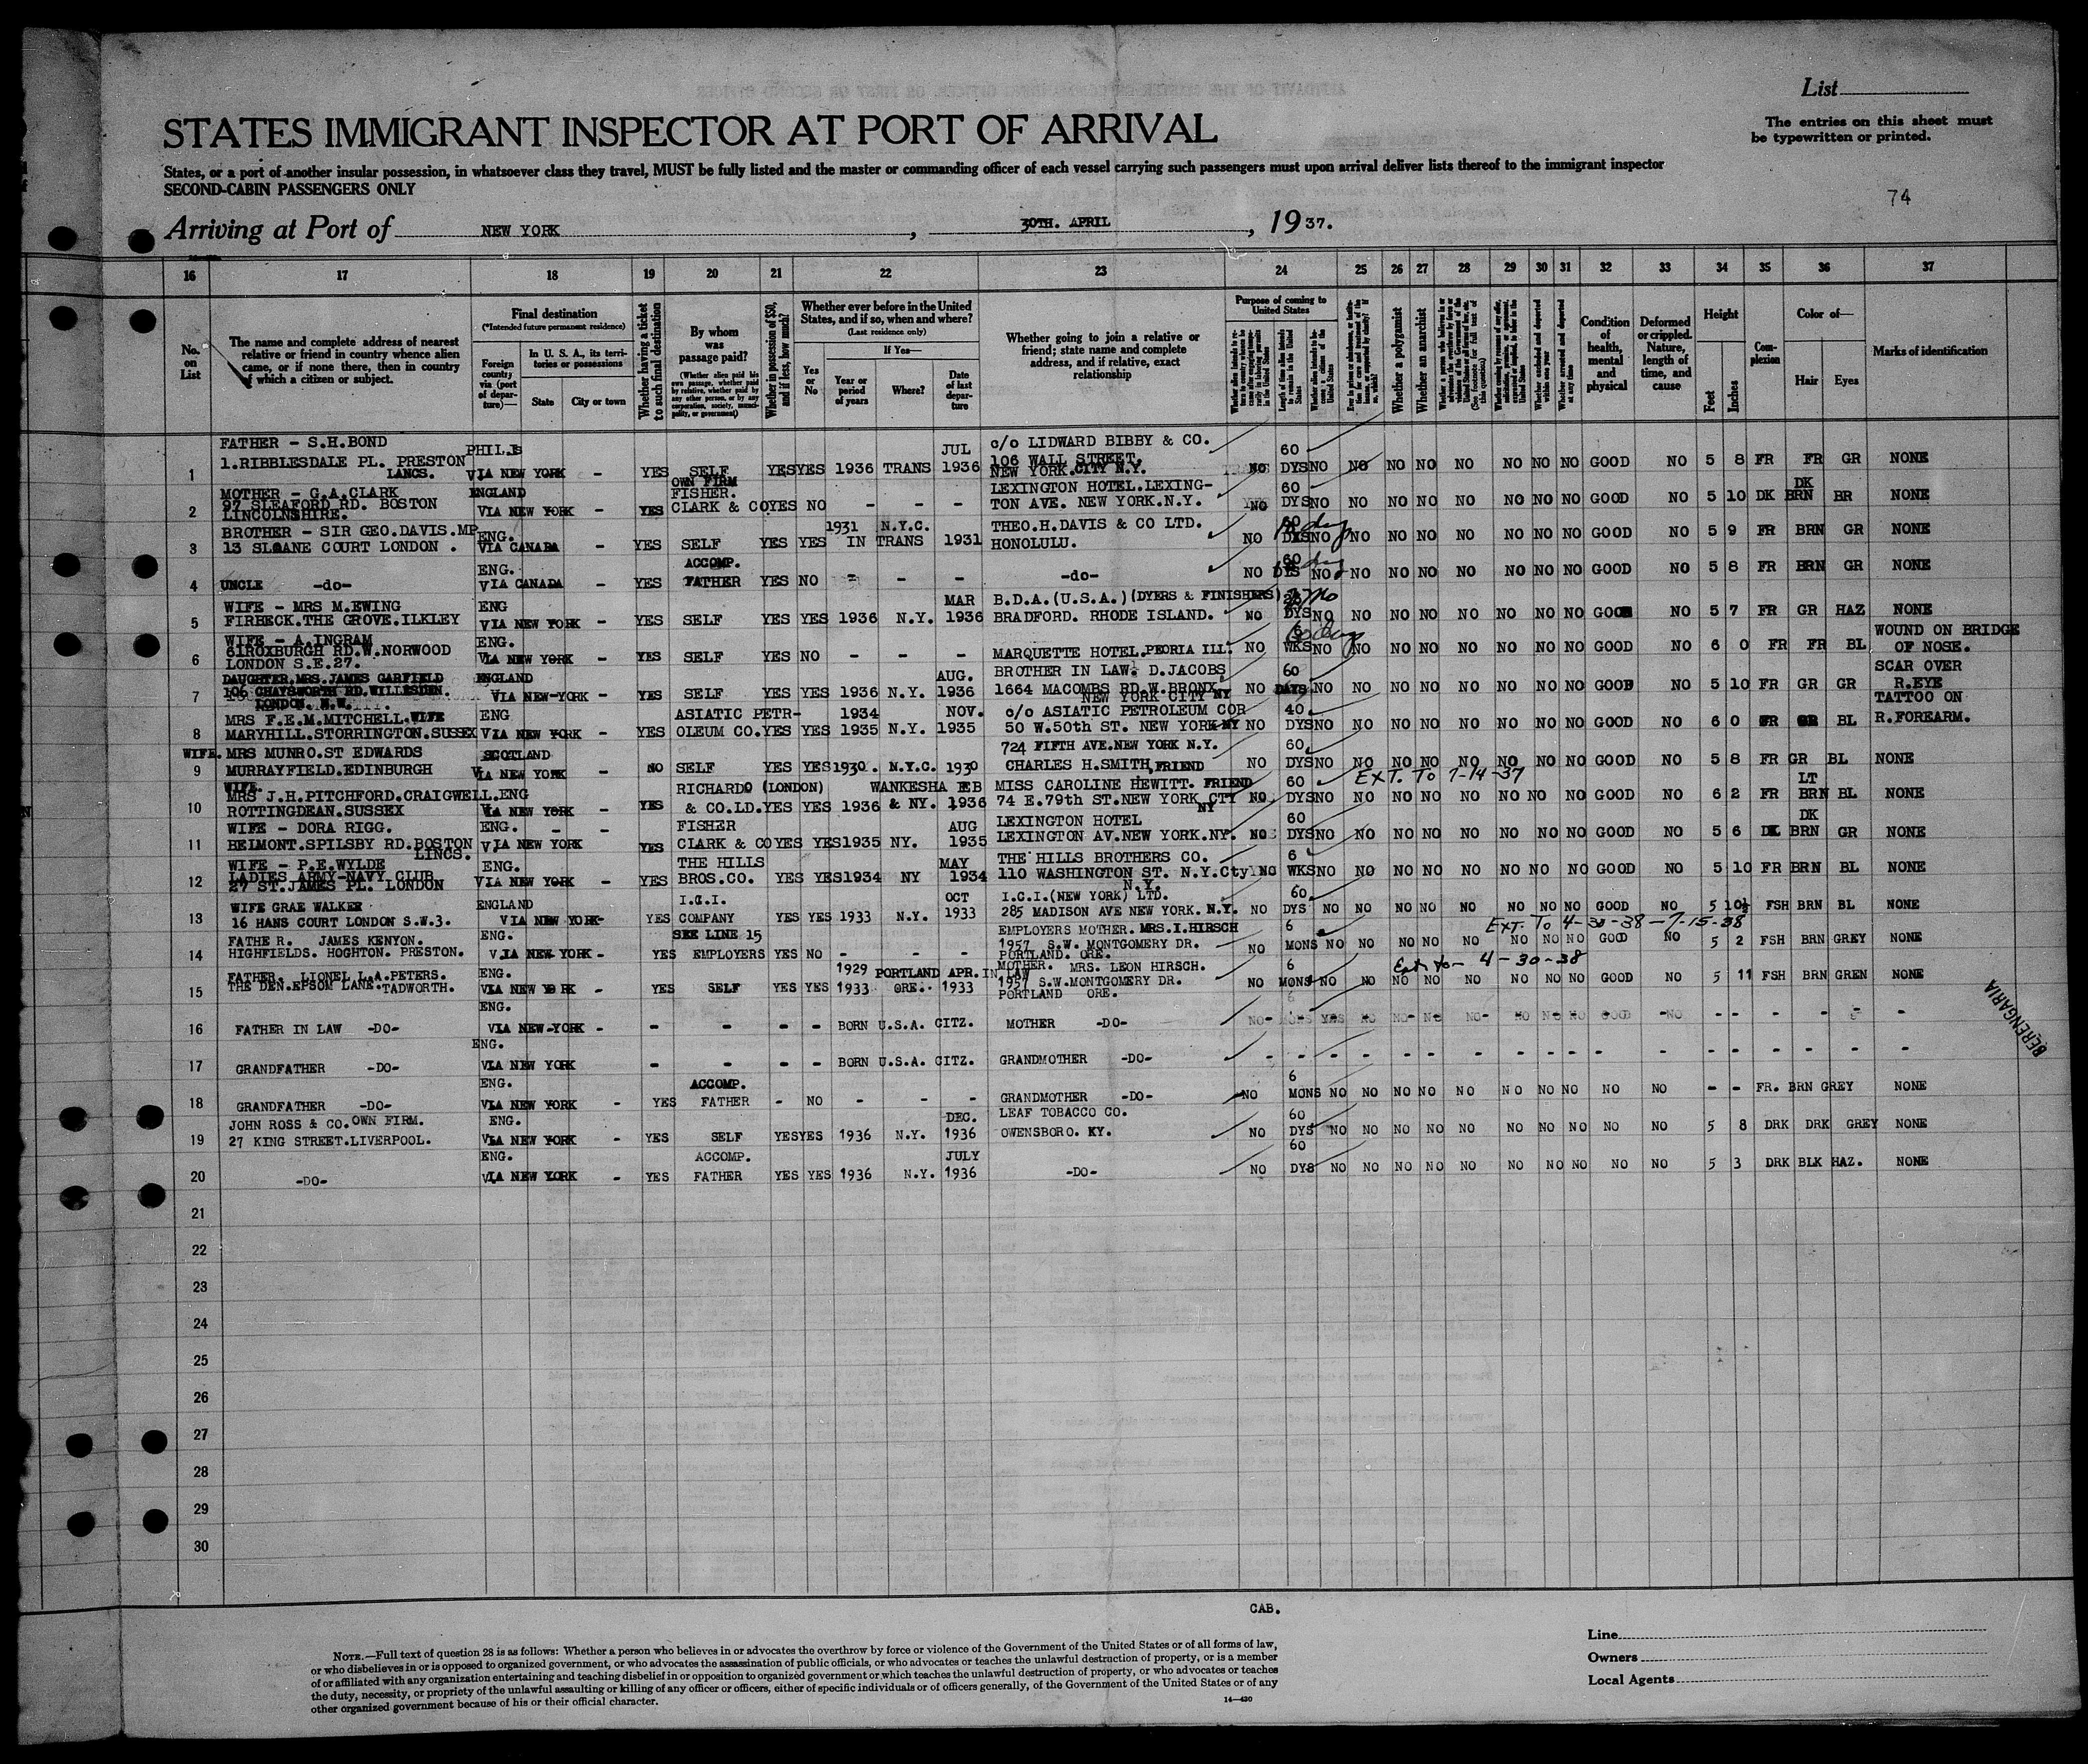 List
The entries on this sheet must
be typewritten or printed.
STATES IMMIGRANT INSPECTOR AT PORT OF ARRIVAL
States, or a port of another insular possession, in whatsoever class they travel, MUST be fully listed and the master or commanding officer of each vessel carrying such passengers must upon arrival deliver lists thereof to the immigrant inspector
SECOND-CABIN PASSENGERS ONLY
74
Arriving at Port of NEW YORK, 30TH. APRIL, 1937.
16 17 18 19 20 21 22 23 24 25 26 27 28 29 30 31 32 33 34 35 36 37
No. on List
The name and complete address of nearest relative or friend in country whence alien came, or if none there, then in country of which a citizen or subject.
Final destination
(*Intended future permanent residence)
Foreign country via (port of departure)—
In U. S. A., its territories or possessions
State
City or town
Whether having a ticket to such final destination
By whom was passage paid?
(Whether alien paid his own passage, whether paid by relative, whether paid by any other person, or by any corporation, society, municipality, or government)
Whether in possession of $50, and if less, how much?
Whether ever before in the United States, and if so, when and where?
(Last residence only)
Yes or No
If Yes—
Year or period of years
Where?
Date of last departure
Whether going to join a relative or friend; state name and complete address, and if relative, exact relationship
Purpose of coming to United States
Length of time alien intends to remain in the United States
Whether a polygamist
Whether an anarchist
Condition of health, mental and physical
Deformed or crippled. Nature, length of time, and cause
Height
Feet
Inches
Complexion
Color of—
Hair
Eyes
Marks of identification
FATHER - S.H.BOND PHILIS JUL c/o LIDWARD BIBBY & CO. 60
1 1.RIBBLESDALE PL. PRESTON LANCS. VIA NEW YORK - YES SELF YES YES 1936 TRANS 1936 106 WALL STREET. NEW YORK.CITY N.Y. NO DYS NO NO NO NO NO NO NO NO GOOD NO 5 8 FR FR GR NONE
MOTHER - G.A.CLARK ENGLAND OWN FIRM FISHER. LEXINGTON HOTEL.LEXING- 60 DK
2 97 SLEAFORD RD. BOSTON LINCOLNSHIRE. VIA NEW YORK - YES CLARK & CO YES NO - - - TON AVE. NEW YORK.N.Y. NO DYS NO NO NO NO NO NO NO NO GOOD NO 5 10 DK BRN BR NONE
BROTHER - SIR GEO.DAVIS.MP ENG. 1931 N.Y.C. THEO.H.DAVIS & CO LTD. 60
3 13 SLOANE COURT LONDON . VIA CANADA - YES SELF YES YES IN TRANS 1931 HONOLULU. NO DYS NO NO NO NO NO NO NO NO GOOD NO 5 9 FR BRN GR NONE
ENG. ACCOMP. 60
4 UNCLE -do- VIA CANADA - YES FATHER YES NO - - - -do- NO DYS NO NO NO NO NO NO NO NO GOOD NO 5 8 FR BRN GR NONE
WIFE - MRS M.EWING ENG MAR B.D.A.(U.S.A.)(DYERS & FINISHERS)
5 FIRBECK.THE GROVE.ILKLEY VIA NEW YORK - YES SELF YES YES 1936 N.Y. 1936 BRADFORD. RHODE ISLAND. NO DYS NO NO NO NO NO NO NO NO GOOD NO 5 7 FR GR HAZ NONE
WIFE - A.INGRAM ENG. 6 60 days WOUND ON BRIDGE
6 61ROXBURGH RD.W.NORWOOD LONDON S.E.27. VIA NEW YORK - YES SELF YES NO - - - MARQUETTE HOTEL.PEORIA ILL. NO WKS NO NO NO NO NO NO NO NO GOOD NO 6 0 FR FR BL OF NOSE.
DAUGHTER.MRS.JAMES GARFIELD ENGLAND AUG. BROTHER IN LAW. D.JACOBS 60 SCAR OVER
7 106 CHAYSWORTH RD.WILLESDEN. LONDON. N.W. VIA NEW-YORK - YES SELF YES YES 1936 N.Y. 1936 1664 MACOMBS RD.W.BRONX NEW YORK CITY NY NO DAYS NO NO NO NO NO NO NO NO GOOD NO 5 10 FR GR GR R.EYE
MRS F.E.M.MITCHELL.WIFE ENG ASIATIC PETR- 1934 NOV. c/o ASIATIC PETROLEUM COR 40. TATTOO ON
8 MARYHILL.STORRINGTON.SUSSEX VIA NEW YORK - YES OLEUM CO. YES YES 1935 N.Y. 1935 50 W.50th ST. NEW YORK NY NO DYS NO NO NO NO NO NO NO NO GOOD NO 6 0 FR GR BL R.FOREARM.
WIFE. MRS MUNRO.ST EDWARDS SCOTLAND 724 FIFTH AVE.NEW YORK N.Y. 60
9 MURRAYFIELD.EDINBURGH VIA NEW YORK - NO SELF YES YES 1930. N.Y.C. 1930 CHARLES H.SMITH, FRIEND NO DYS NO NO NO NO NO NO NO NO GOOD NO 5 8 FR GR BL NONE
EXT. TO 7-14-37
WIFE. MRS J.H.PITCHFORD.CRAIGWELL. ENG RICHARDO (LONDON) WANKESHA FEB MISS CAROLINE HEWITT. FRIEND 60 LT
10 ROTTINGDEAN.SUSSEX VIA NEW YORK - YES & CO.LD. YES YES 1936 & NY. 1936 74 E.79th ST.NEW YORK CTY NY NO DYS NO NO NO NO NO NO NO NO GOOD NO 6 2 FR BRN BL NONE
WIFE - DORA RIGG. ENG. - - FISHER AUG LEXINGTON HOTEL 60 DK
11 BELMONT.SPILSBY RD.BOSTON LINCS. VIA NEW YORK YES CLARK & CO YES YES 1935 NY. 1935 LEXINGTON AV.NEW YORK.NY. NO DYS NO NO NO NO NO NO NO NO GOOD NO 5 6 DK BRN GR NONE
WIFE - P.E.WYLDE ENG. THE HILLS MAY THE HILLS BROTHERS CO. 6
12 LADIES ARMY-NAVY CLUB 27 ST.JAMES PL. LONDON VIA NEW YORK - YES BROS.CO. YES YES 1934 NY 1934 110 WASHINGTON ST. N.Y.Cty N.Y. NO WKS NO NO NO NO NO NO NO NO GOOD NO 5 10 FR BRN BL NONE
WIFE GRAE WALKER ENGLAND I.C.I. OCT I.C.I.(NEW YORK) LTD. 60
13 16 HANS COURT LONDON S.W.3. VIA NEW YORK- YES COMPANY YES YES 1933 N.Y. 1933 285 MADISON AVE NEW YORK. N.Y. NO DYS NO NO NO NO NO NO NO NO GOOD NO 5 10½ FSH BRN BL NONE
EXT. TO 4-30-38-7-15-38
FATHE R. JAMES KENYON. ENG. SEE LINE 15 EMPLOYERS MOTHER. MRS.I.HIRSCH 6
14 HIGHFIELDS. HOGHTON. PRESTON. VIA NEW YORK - YES EMPLOYERS YES NO - - - 1957 S.W. MONTGOMERY DR. PORTLAND. ORE. NO MONS NO NO NO NO NO NO NO NO GOOD NO 5 2 FSH BRN GREY NONE
Ext. to- 4-30-38
FATHER. LIONEL L.A.PETERS. ENG. 1929 PORTLAND APR. IN LAW MOTHER. MRS. LEON HIRSCH. 6
15 THE DEN.EPSOM LANE.TADWORTH. VIA NEW YORK - YES SELF YES YES 1933 ORE. 1933 1957 S.W.MONTGOMERY DR. PORTLAND ORE. NO MONS NO NO NO NO NO NO NO NO GOOD NO 5 11 FSH BRN GREN NONE
ENG. 6
16 FATHER IN LAW -DO- VIA NEW-YORK - - - - BORN U.S.A. CITZ. MOTHER -DO- NO- MONS YES NO NO- NO NO- NO NO NO GOOD -NO - - - - - -
ENG.
17 GRANDFATHER -DO- VIA NEW YORK - - - BORN U.S.A. CITZ. GRANDMOTHER -DO- - - - - - - - - - - - - - - - - - -
ENG. ACCOMP. 6
18 GRANDFATHER -DO- VIA NEW YORK - YES FATHER - NO - - - GRANDMOTHER -DO- NO MONS NO NO NO NO NO NO NO NO NO NO - - FR. BRN GREY NONE
JOHN ROSS & CO. OWN FIRM. ENG. DEC. LEAF TOBACCO CO. 60
19 27 KING STREET.LIVERPOOL. VIA NEW YORK - YES SELF YES YES 1936 N.Y. 1936 OWENSBORO. KY. NO DYS NO NO NO NO NO NO NO NO NO NO 5 8 DRK DRK GREY NONE
ENG. ACCOMP. JULY 60
20 -DO- VIA NEW YORK - YES FATHER YES YES 1936 N.Y. 1936 -DO- NO DYS NO NO NO NO NO NO NO NO NO NO 5 3 DRK BLK HAZ. NONE
BERENGARIA
21
22
23
24
25
26
27
28
29
30
CAB.
NOTE.—Full text of question 28 is as follows: Whether a person who believes in or advocates the overthrow by force or violence of the Government of the United States or of all forms of law,
or who disbelieves in or is opposed to organized government, or who advocates the assassination of public officials, or who advocates or teaches the unlawful destruction of property, or is a member
of or affiliated with any organization entertaining and teaching disbelief in or opposition to organized government or which teaches the unlawful destruction of property, or who advocates or teaches
the duty, necessity, or propriety of the unlawful assaulting or killing of any officer or officers, either of specific individuals or of officers generally, of the Government of the United States or of any
other organized government because of his or their official character.
14—430
Line
Owners
Local Agents